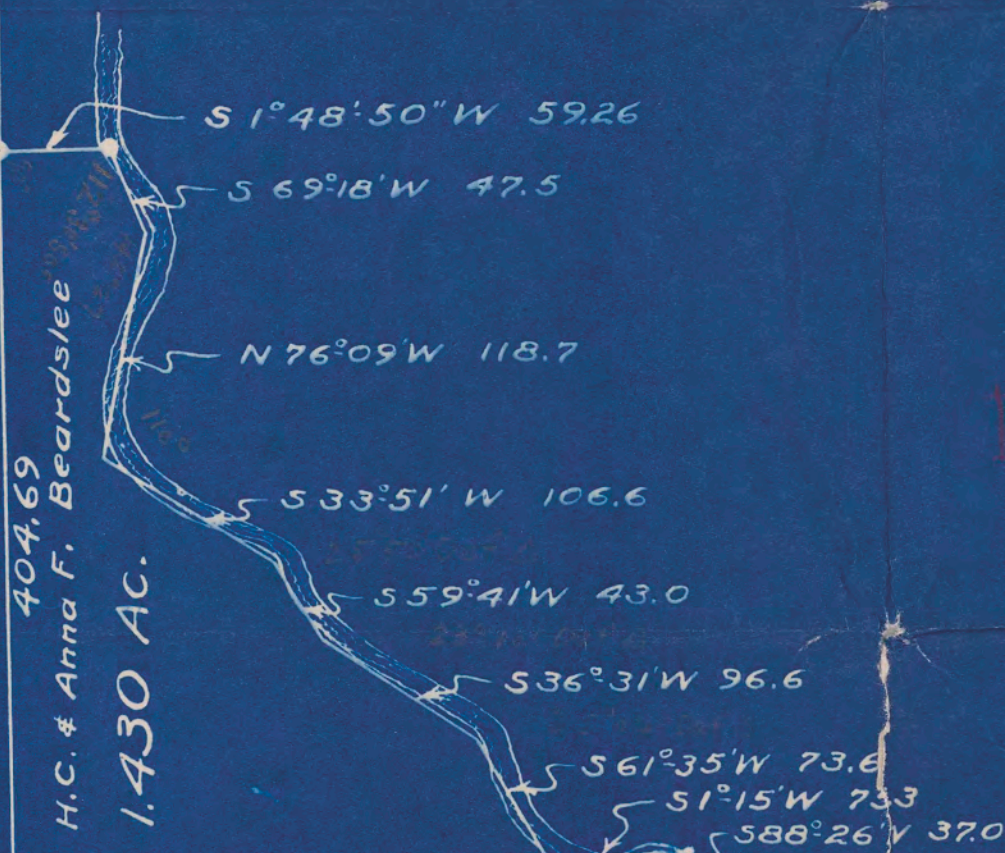 S 1°48'50" W 59.26
S 69°18' W 47.5
N 76°09' W 118.7
S 33°51' W 106.6
S 59°41' W 43.0
S 36°31' W 96.6
S 61°35' W 73.6
S 1°15' W 73.3
S 88°26' W 37.0
404.69
H.C. & Anna F. Beardslee
1.430 AC.